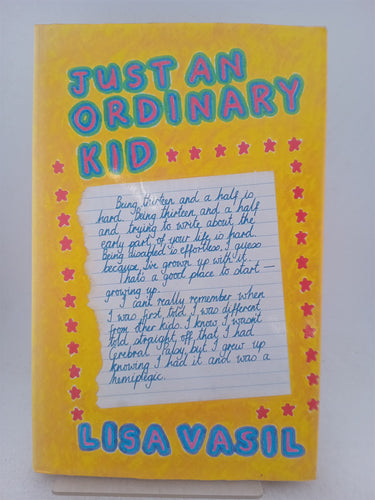 JUST AN
ORDINARY
KID
Being thirteen and a half is
hard. Being thirteen and a half
and trying to write about the
early part of your life is hard.
Being disabled is effortless. I guess
because I've grown up with it.
That's a good place to start —
growing up.
I can't really remember when
I was first told I was different
from other kids. I know I wasn't
told straight off that I had
Cerebral Palsy, but I grew up
knowing I had it and was a
hemiplegic.
LISA VASIL